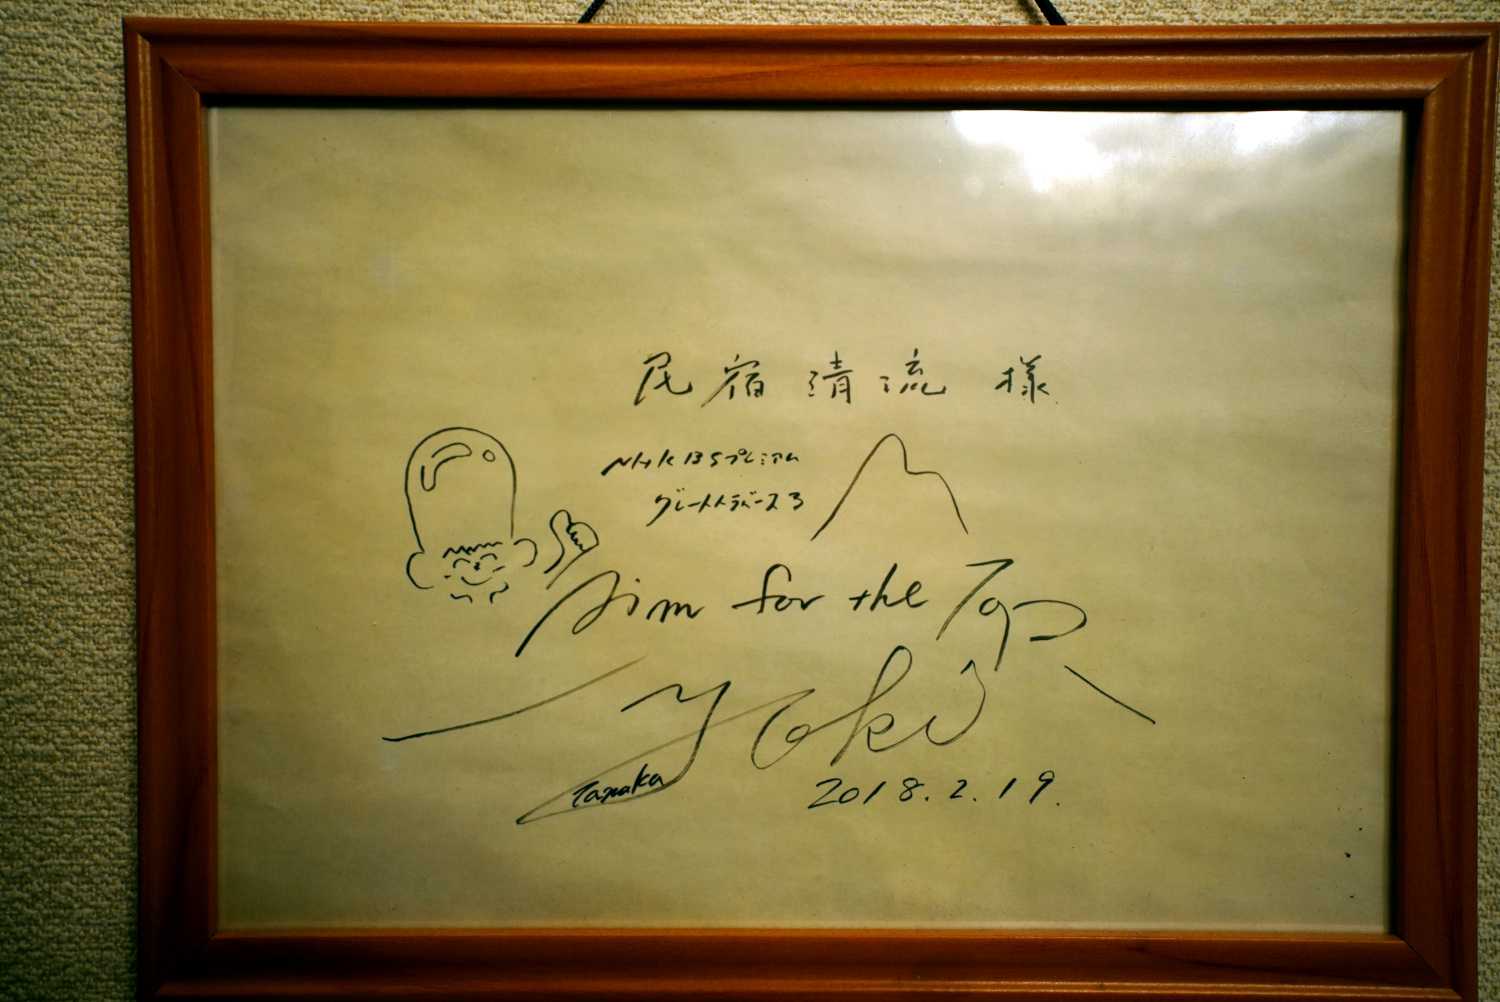 民宿清流 様
NHK BSプレミアム
グレートトラバース3
Aim for the Top
Yoki
Tanaka
2018.2.19.